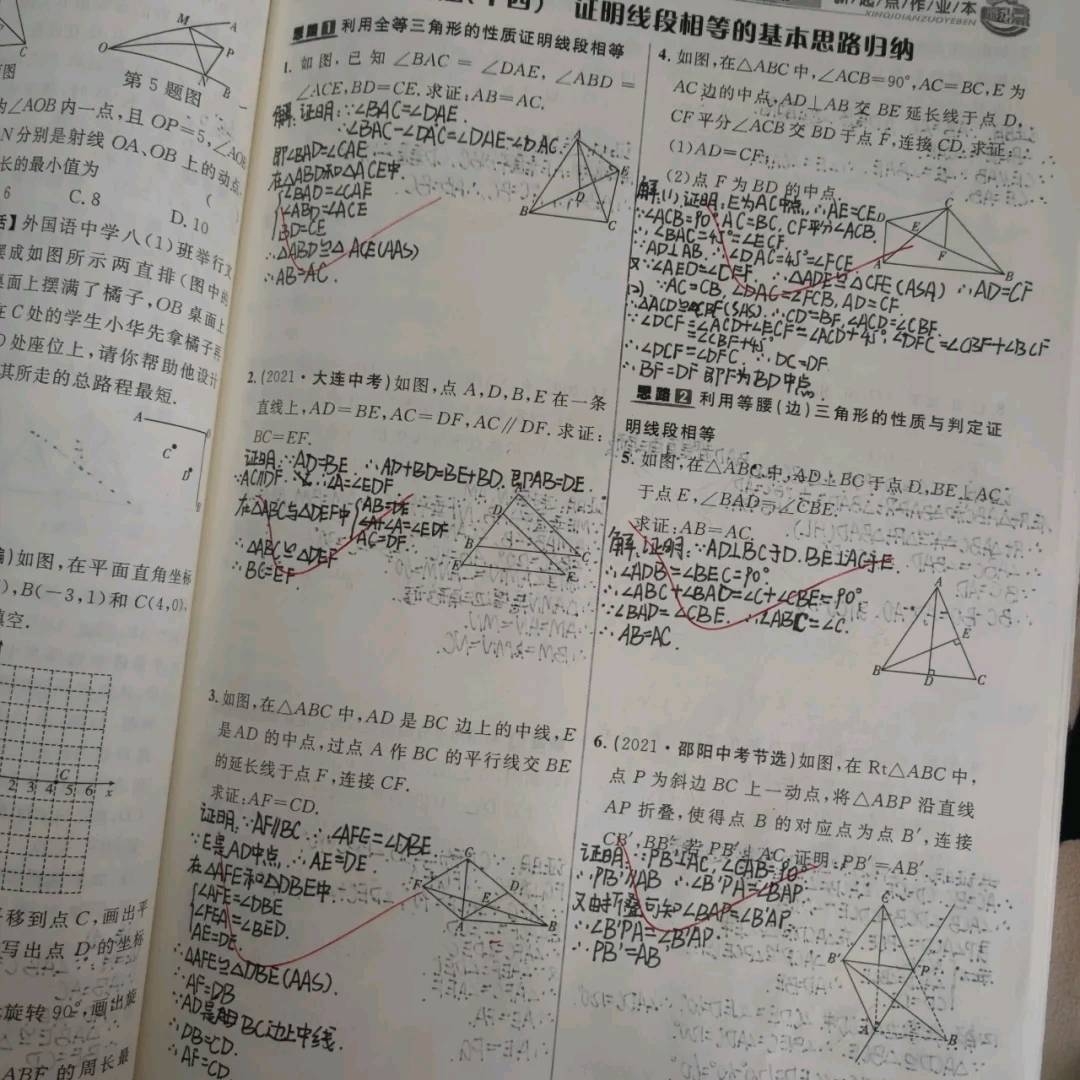 第5题图
为∠AOB内一点,且OP=5,∠AOB
N分别是射线OA、OB上的动点
长的最小值为 ( )
6 C.8 D.10
活】外国语中学八(1)班举行文
摆成如图所示两直排(图中的
桌面上摆满了橘子,OB桌面上
在C处的学生小华先拿橘子再
D处座位上,请你帮助他设计
其所走的总路程最短.
)如图,在平面直角坐标
),B(-3,1)和C(4,0),
填空.
2 3 4 5 6 x
移到点C,画出平
写出点D的坐标
旋转90°,画出旋
ABF的周长最
证明线段相等的基本思路归纳
新起点作业本
XINQIDIANZUOYEBEN
思路1 利用全等三角形的性质证明线段相等
1. 如图,已知∠BAC=∠DAE,∠ABD=
∠ACE,BD=CE.求证:AB=AC.
解:证明:∵∠BAC=∠DAE.
∴∠BAC-∠DAC=∠DAE-∠DAC.
即∠BAD=∠CAE.
在△ABD和△ACE中
∠BAD=∠CAE
∠ABD=∠ACE
BD=CE
∴△ABD≌△ACE(AAS)
∴AB=AC.
2. (2021·大连中考)如图,点A,D,B,E在一条
直线上,AD=BE,AC=DF,AC∥DF.求证:
BC=EF.
证明:∵AD=BE.∴AD+BD=BE+BD.即AB=DE.
∵AC∥DF.∴∠A=∠EDF
在△ABC与△DEF中
AB=DE
∠A=∠EDF
AC=DF
∴△ABC≌△DEF
∴BC=EF
3. 如图,在△ABC中,AD是BC边上的中线,E
是AD的中点,过点A作BC的平行线交BE
的延长线于点F,连接CF.
求证:AF=CD.
证明:∵AF∥BC.∴∠AFE=∠DBE.
∵E是AD中点.∴AE=DE.
在△AFE和△DBE中
∠AFE=∠DBE
∠FEA=∠BED.
AE=DE
∴△AFE≌△DBE(AAS).
∴AF=DB
∵AD是BC边上中线.
∴DB=CD.
∴AF=CD
4. 如图,在△ABC中,∠ACB=90°,AC=BC,E为
AC边的中点,AD⊥AB交BE延长线于点D,
CF平分∠ACB交BD于点F,连接CD.求证:
(1)AD=CF;
(2)点F为BD的中点.
解:(1)证明:E为AC中点.∴AE=CE
∵∠ACB=90°AC=BC.CF平分∠ACB.
∴∠BAC=45°=∠ECF.
∵AD⊥AB.∴∠DAC=45°=∠FCE
又∵∠AED=∠CEF.∴△ADE≌△CFE(ASA)∴AD=CF
(2)∵AC=CB,∠DAC=∠FCB,AD=CF
∴△ACD≌△CBF(SAS).∴CD=BF.∠ACD=∠CBF.
∵∠DCF=∠ACD+∠ECF=∠ACD+45°,∠DFC=∠CBF+∠BCF
=∠CBF+45°
∴∠DCF=∠DFC.∴DC=DF
∴BF=DF即F为BD中点.
思路2 利用等腰(边)三角形的性质与判定证
明线段相等
5. 如图,在△ABC中,AD⊥BC于点D,BE⊥AC
于点E,∠BAD=∠CBE.
求证:AB=AC.
解:证明:∵AD⊥BC于D.BE⊥AC于E.
∴∠ADB=∠BEC=90°
∴∠ABC+∠BAD=∠C+∠CBE=90°
∵∠BAD=∠CBE.∴∠ABC=∠C.
∴AB=AC.
6. (2021·邵阳中考节选)如图,在Rt△ABC中,
点P为斜边BC上一动点,将△ABP沿直线
AP折叠,使得点B的对应点为点B′,连接
CB′,BB′.若PB′⊥AC,证明:PB′=AB′.
证明:∵PB′⊥AC,∠CAB=90°
∴PB′∥AB ∴∠B′PA=∠BAP
又由折叠可知∠BAP=∠B′AP
∴∠B′PA=∠B′AP.
∴PB′=AB′